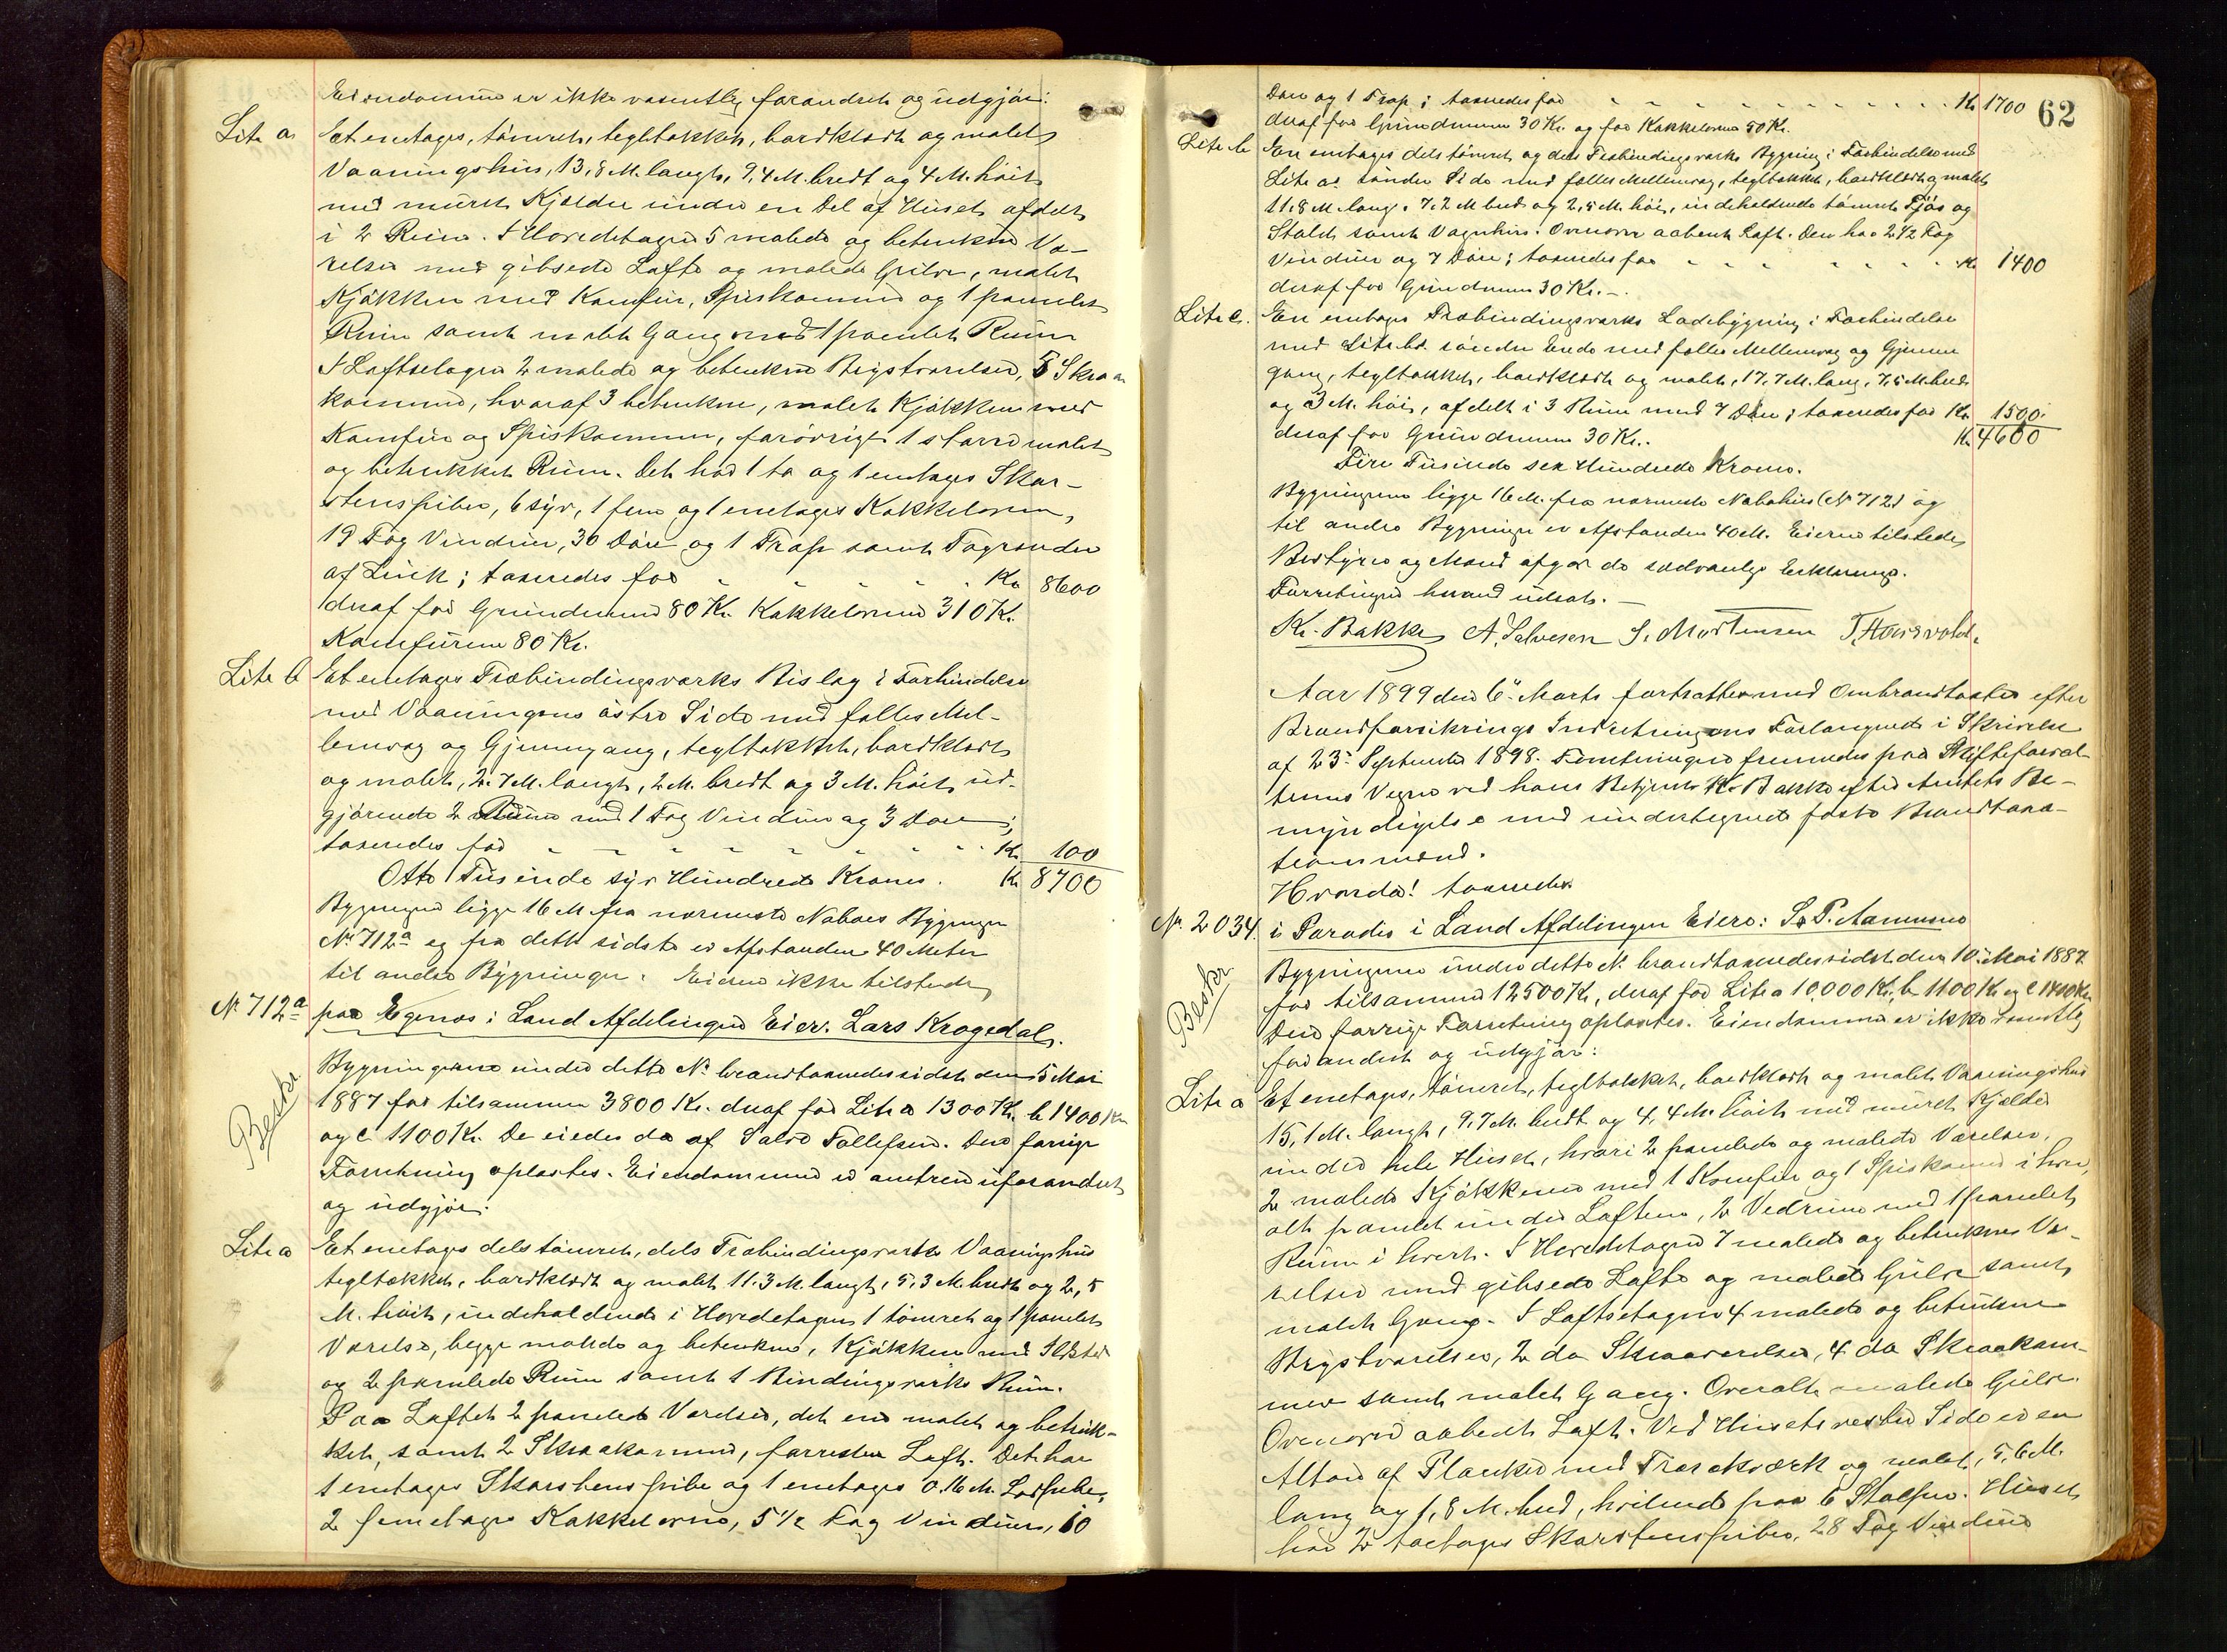 Eiendommen er ikke væsentlig forandret og udgjør:
Litr a Et enetages, tømret, tegltækket, bordklædt og malet
Vaaningshus, 13,8 M. langt, 9,4 M. bredt og 4 M. høit
med muret Kjælder under en Del af Huset afdelt
i 2 Rum. I Hovedetagen 5 malede og betrukne Væ-
relser med gibsede Lofte og malede Gulve, malet
Kjøkken med Komfur, Spiskammer og 1 panelet
Rum samt malet Gang med 1 panelet Rum
I Loftsetagen 2 malede og betrukne Brystværelser, 5 Skraa
kammere, hvoraf 3 betrukne, malet Kjøkken med
Komfur og Spiskammer, forøvrigt 1 større malet
og betrukket Rum. Det har 1 to og 1 enetages Skor-
stenspiber, 6 syv, 1 fem og 1 enetages Kakkelovn,
19 Fag Vinduer, 30 Døre og 1 Trap samt Tagrender
af Zink; taxeredes for " " " " Kr 8600
deraf for Grundmur 80 Kr. Kakkelovne 310 Kr.
Komfurene 80 Kr.
Litr b Et enetages Træbindingsværks Bislag i Forbindelse
med Vaaningens østre Side med fælles Mel-
lemvæg og Gjennemgang, tegltækket, bordklædt
og malet, 2,7 M. langt, 2 M. bredt og 3 M. høit ud-
gjørende 2 Rum med 1 Fag Vinduer og 3 Døre;
taxeredes for " " " " " " Kr. 100
Otte Tusinde syv Hundrede Kroner. Kr 8700
Bygningen ligger 16 M fra nærmeste Naboes Bygninger
No. 712a og fra dette sidste er Afstanden 40 Meter
til andre Bygninger. Eieren ikke tilstede
No. 712a paa Egenes i Land Afdelingen Eier. Lars Kragedal.
Beskr.
Bygningerne under dette No. brandtaxeredes sidst den 5 Mai
1887 for tilsammen 3800 Kr. deraf for Litr a 1300 Kr. b 1400 Kr
og c 1100 Kr. De eiedes da af Salve Tollefsen. Den forrige
Forretning oplæstes. Eiendommen er omtrent uforandret
og udgjør:
Litr a Et enetages dels tømret, dels Træbindingsværks Vaaningshus
tegltækket, bordklædt og malet 11.3 M. langt, 5,3 M. bredt og 2,5
M. høit, indeholdende i Hovedetagen 1 tømret og 1 panelet
Værelse, begge malede og betrukne, Kjøkken med Ildsted
og 2 panelede Rum samt 1 Bindingsværks Rum.
Paa Loftet 2 panelede Værelser, det ene malet og betruk-
ket, samt 2 Skraakammere, forresten Loft. Det har
1 enetages Skorstenspibe og 1 enetages 0.16 M. Lerpibe,
2 femetages Kakkelovne, 5 1/2 Fag Vinduer, 10
62
Døre og 1 Trap; taxeredes for " " " " " " " Kr. 1700
deraf for Grundmuren 30 Kr. og for Kakkelovne 50 Kr.
Litr b En enetages dels tømret og dels Træbindingsværks Bygning i Forbindelse med
Litr a's søndre Side med fælles Mellemvæg, tegltækket, bordklædt og malet
11,8 M. lang, 7,2 M bred og 2,5 M. høi, indeholdende tømret Fjøs og
Stald samt Vognhus. Ovenover aabent Loft. Den har 2 1/2 Fag
Vinduer og 7 Døre; taxeredes for " " " " " " Kr 1400
deraf for Grundmuren 30 Kr. —
Litr c. En enetages Træbindingsværks Ladebygning i Forbindelse
med Litr b's søndre Ende med fælles Mellemvæg og Gjennem
gang, tegltækket, bordklædt og malet, 17,7 M. lang, 7,5 M. bred
og 3 M. høi, afdelt i 3 Rum med 7 Døre; taxeredes for Kr. 1500.
deraf for Grundmuren 30 Kr. Kr 4600
Fire Tusinde sex Hundrede Kroner.
Bygningerne ligge 16 M. fra nærmeste Nabohus (No 712) og
til andre Bygninger er Afstanden 40 M. Eieren tilstede
Bestyrer og Mænd afgav de sædvanlige Erklæringer.
Forretningen hermed udsat. —
Kr. Bakke A. Salvesen S. Mortensen
Aar 1899 den 6te Marts fortsattes med Ombrandtaxter efter
Brandforsikrings Indretningens Forlangende i Skrivelse
af 23de September 1898. Forretningen fremmedes paa Skifteforval
terens Vegne ved hans Betjent Kr. Bakke efter Amtets Be-
myndigelse med undertegnede faste Brandtaxa-
tionsmænd.
Hvorda! taxeredes
No. 2034. i Paradis i Land Afdelingen Eiere: S. P. Aanensen
Beskr.
Bygningerne under dette No. brandtaxeredes sidst den 10de Mai 1887
for tilsammen 12500 Kr, deraf for Litr a 10,000 Kr, b 1100 Kr og c 1400 Kr
Den forrige Forretning oplæstes. Eiendommen er ikke væsentlig
forandret og udgjør:
Litr a Et enetages, tømret, tegltækket, bordklædt og malet Vaaningshus
15,1 M. langt, 9,7 M. bredt og 4,4 M. høit med muret Kjælder
under hele Huset, hvori 2 panelede og malede Værelser,
2 malede Kjøkkener med 1 Komfur og 1 Spiskammer i hver,
alt panelet under Loftene, 2 Vedrum med 1 panelet
Rum i hvert. I Hovedetagen 7 malede og betrukne Væ-
relser med gibsede Lofte og malede Gulve samt
malet Gang. I Loftsetagen 4 malede og betrukne
Brystværelser, 2 do Skraaværelser, 4 do Skraakam-
mer samt malet Gang. Overalt malede Gulve.
Ovenover aabent Loft. Ved Husets vestre Side er en
Altan af Planker med Trærækværk og malet, 5,6 M.
lang og 1,8 M. bred, hvilende paa 6 Stolper. Huset
har 2 toetages Skorstenspiber, 28 Fag Vinduer